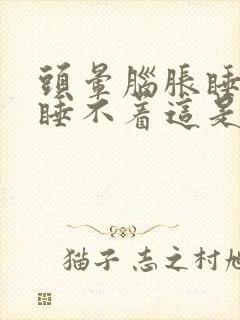 頭暈腦脹睡
睡不着這是
猫子 志之村旭